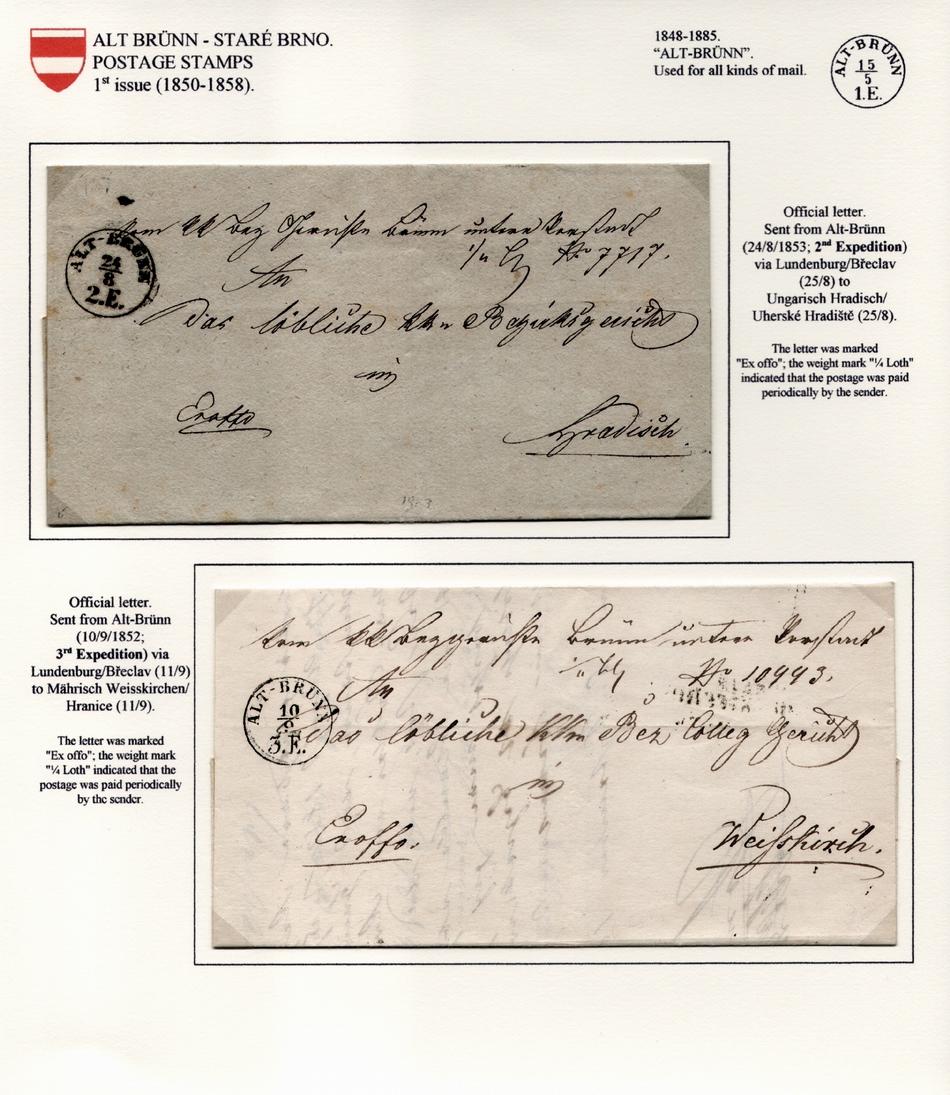 ALT BRÜNN - STARÉ BRNO.
POSTAGE STAMPS
1st issue (1850-1858).
1848-1885.
"ALT-BRÜNN".
Used for all kinds of mail.
ALT-BRÜNN
15
5
1.E.
Vom kk Bez Gerichte Brünn untere Vorstadt
No 7717.
ALT-BRÜNN
24
8
2.E.
An
das löbliche kk Bezirksgericht
in
Exoffo
Hradisch.
Official letter.
Sent from Alt-Brünn
(24/8/1853; 2nd Expedition)
via Lundenburg/Břeclav
(25/8) to
Ungarisch Hradisch/
Uherské Hradiště (25/8).
The letter was marked
"Ex offo"; the weight mark "¼ Loth"
indicated that the postage was paid
periodically by the sender.
Official letter.
Sent from Alt-Brünn
(10/9/1852;
3rd Expedition) via
Lundenburg/Břeclav (11/9)
to Mährisch Weisskirchen/
Hranice (11/9).
The letter was marked
"Ex offo"; the weight mark
"¼ Loth" indicated that the
postage was paid periodically
by the sender.
Vom kk Bezgerichte Brünn untere Vorstadt
No 10993.
An
ALT-BRÜNN
10
9
3.E.
das löbliche kk Bez Colleg Gericht
in
Exoffo.
Weisskirch.